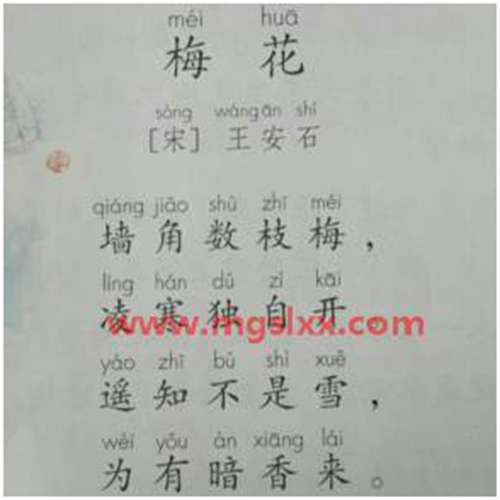 méi huā
梅 花
sòng wáng ān shí
[宋] 王安石
qiáng jiǎo shù zhī méi
墙角数枝梅，
líng hán dú zì kāi
凌寒独自开。
www.mgslxx.com
yáo zhī bú shì xuě
遥知不是雪，
wèi yǒu àn xiāng lái
为有暗香来。